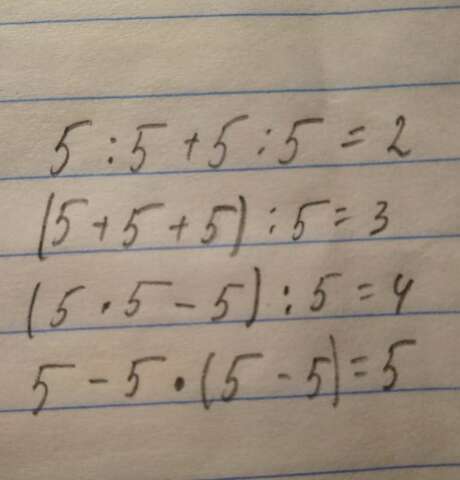 5 : 5 + 5 : 5 = 2
(5 + 5 + 5) : 5 = 3
(5 · 5 - 5) : 5 = 4
5 - 5 · (5 - 5) = 5